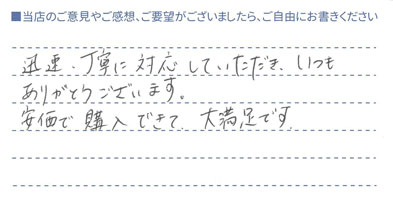 ■当店のご意見やご感想、ご要望がございましたら、ご自由にお書きください
迅速、丁寧に対応していただき、いつも
ありがとうございます。
安価で購入できて、大満足です